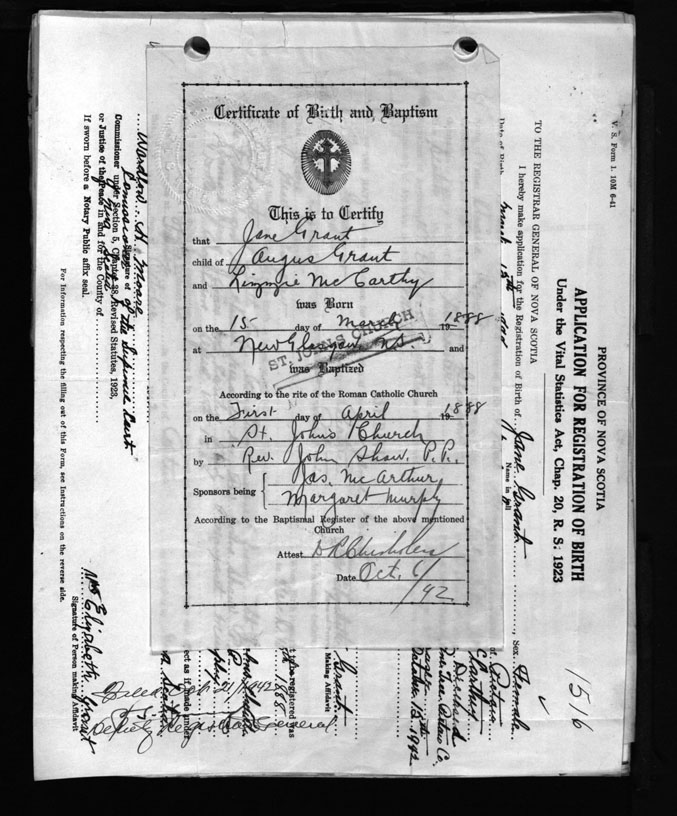 Certificate of Birth and Baptism
This is to Certify
that Jane Grant
child of Angus Grant
and Lizzie McCarthy
was Born
on the 15 day of March 1888
at New Glasgow, N.S. and
ST. JOHN'S CHURCH
was Baptized
According to the rite of the Roman Catholic Church
on the First day of April 1888
in St. John's Church
by Rev. John Shaw, P.P.
Sponsors being { Jas. McArthur
Margaret Murphy
According to the Baptismal Register of the above mentioned
Church
Attest D R Chisholm
Date Oct. 6/42
V. S. Form 1. 10M 6-41
PROVINCE OF NOVA SCOTIA
APPLICATION FOR REGISTRATION OF BIRTH
Under the Vital Statistics Act, Chap. 20, R. S. 1923
1516
TO THE REGISTRAR GENERAL OF NOVA SCOTIA
I hereby make application for the Registration of Birth of Jane Grant, Sex Female
Name in full
Date of Birth March 15th
Deceased
October 13th 1942
Grant
Making Affidavit
registered was
1888
ect as if made under
Filed Oct 21/1942
Deputy Registrar General
Mrs Elizabeth Grant
Signature of Person making Affidavit
Wardlow H. Moore
Signature of
Commissioner of the Supreme Court
Commissioner under Section 5, Chapter 38, Revised Statutes, 1923,
or Justice of the Peace in and for the County of
If sworn before a Notary Public affix seal.
For Information respecting the filling out of this Form, see Instructions on the reverse side.